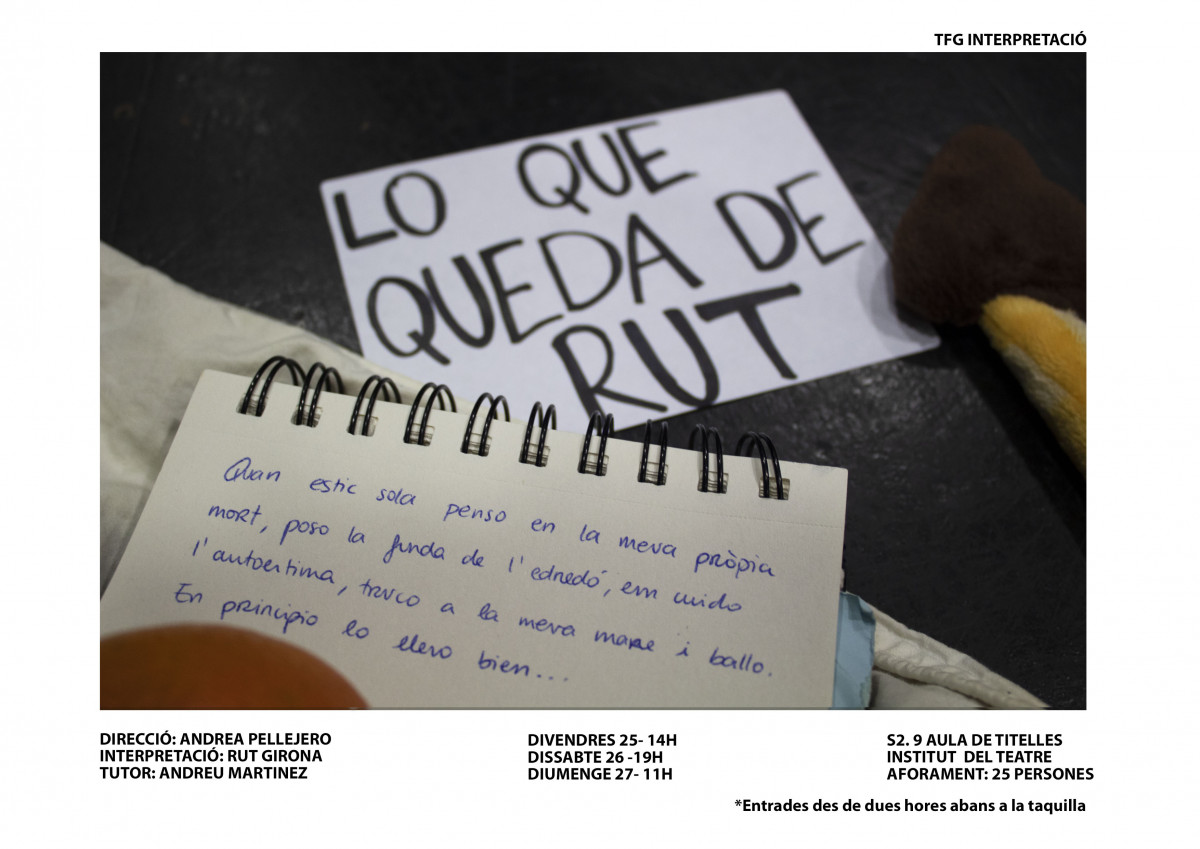 TFG INTERPRETACIÓ
LO QUE
QUEDA DE
RUT
Quan estic sola penso en la meva pròpia
mort, poso la funda de l'edredó, em cuido
l'autoestima, truco a la meva mare i ballo.
En principio lo llevo bien...
DIRECCIÓ: ANDREA PELLEJERO
INTERPRETACIÓ: RUT GIRONA
TUTOR: ANDREU MARTINEZ
DIVENDRES 25- 14H
DISSABTE 26 -19H
DIUMENGE 27- 11H
S2. 9 AULA DE TITELLES
INSTITUT DEL TEATRE
AFORAMENT: 25 PERSONES
*Entrades des de dues hores abans a la taquilla